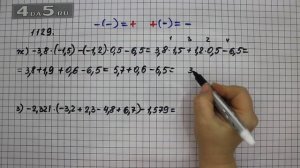 4DA5.RU
-(-)=+ +(-)=-
1129.
1 3 2 4
ж) -3,8·(-1,5)-(-1,2)·0,5-6,5= 3,8·1,5+1,2·0,5-6,5=
- 3,8+1,9 + 0,6-6,5= 5,7+0,6-6,5=
з) -2,321·(-3,2+2,3-4,8+6,7)-1,579=